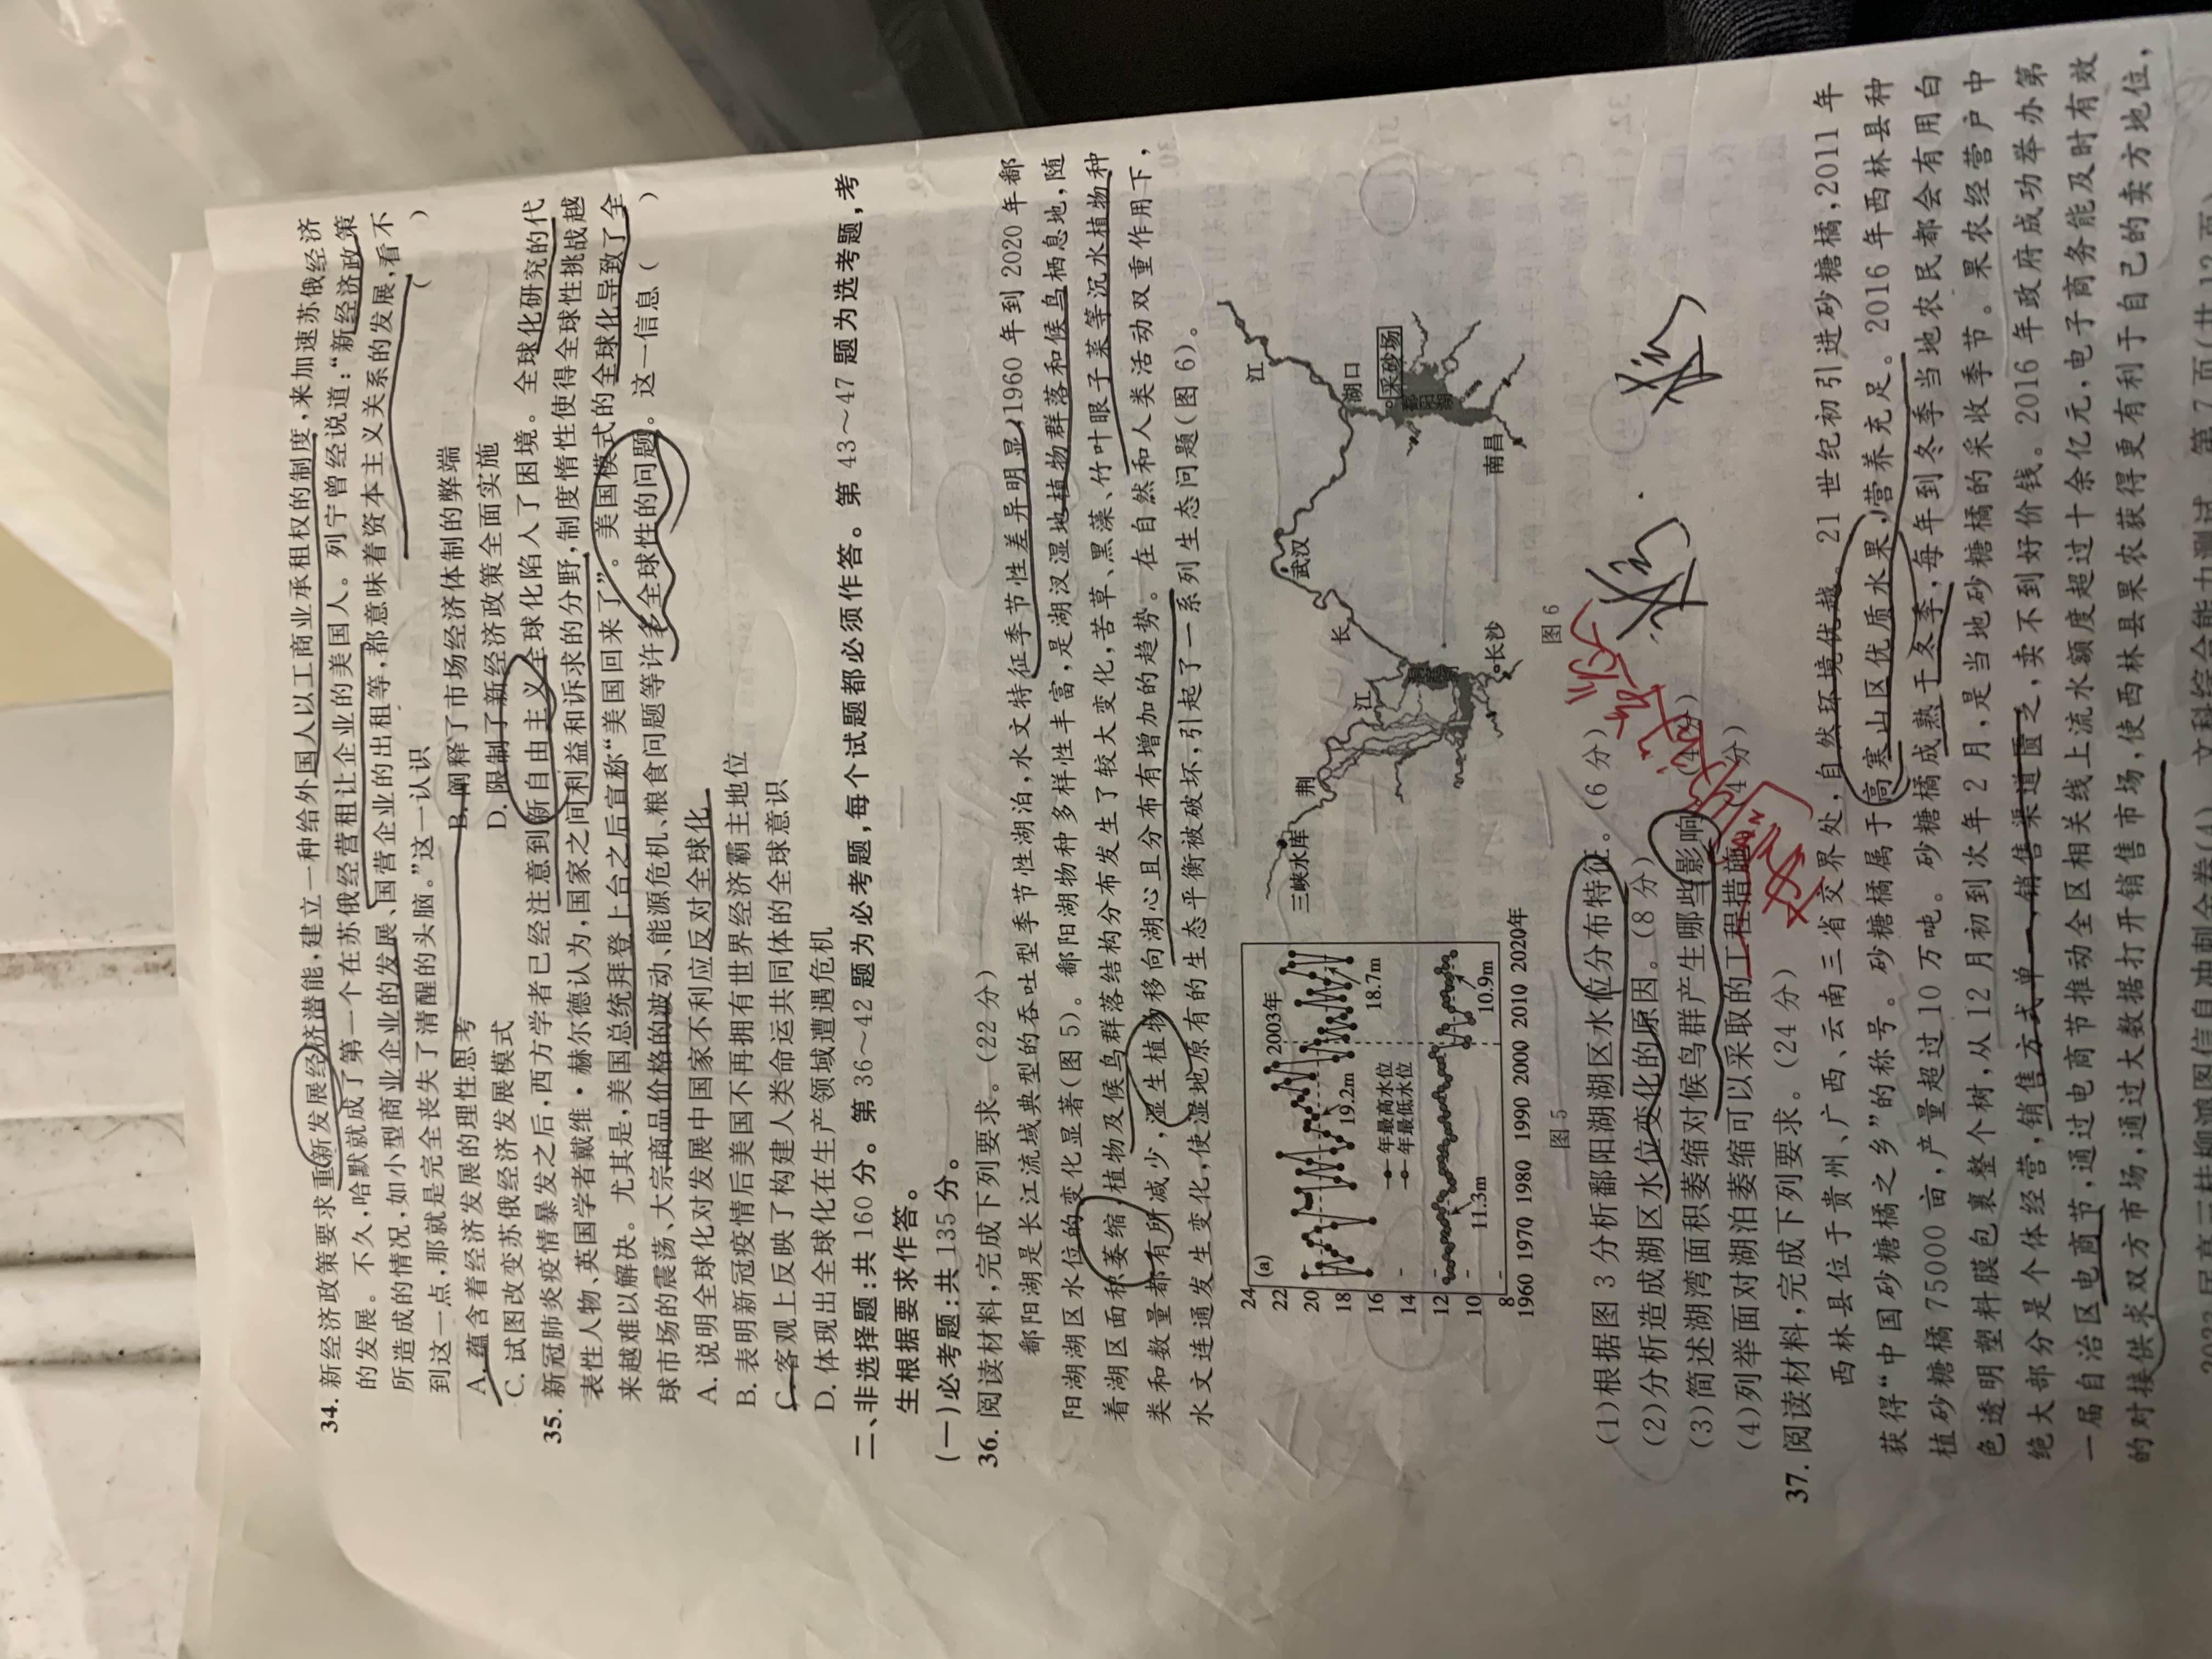 34. 新经济政策要求重新发展经济潜能,建立一种给外国人以工商业承租权的制度,来加速苏俄经济
的发展。不久,哈默就成了第一个在苏俄经营租让企业的美国人。列宁曾经说道:“新经济政策
所造成的情况,如小型商业企业的发展、国营企业的出租等,都意味着资本主义关系的发展,看不
到这一点,那就是完全丧失了清醒的头脑。”这一认识 ( )
A. 蕴含着经济发展的理性思考 B. 阐释了市场经济体制的弊端
C. 试图改变苏俄经济发展模式 D. 限制了新经济政策全面实施
35. 新冠肺炎疫情暴发之后,西方学者已经注意到新自由主义全球化陷入了困境。全球化研究的代
表性人物、英国学者戴维·赫尔德认为,国家之间利益和诉求的分野,制度惰性使得全球性挑战越
来越难以解决。尤其是,美国总统拜登上台之后宣称“美国回来了”。美国模式的全球化导致了全
球市场的震荡、大宗商品价格的波动、能源危机、粮食问题等许多全球性的问题。这一信息 ( )
A. 说明全球化对发展中国家不利应反对全球化
B. 表明新冠疫情后美国不再拥有世界经济霸主地位
C. 客观上反映了构建人类命运共同体的全球意识
D. 体现出全球化在生产领域遭遇危机
二、非选择题:共 160 分。第 36~42 题为必考题,每个试题都必须作答。第 43~47 题为选考题,考
生根据要求作答。
(一)必考题:共 135 分。
36. 阅读材料,完成下列要求。(22 分)
鄱阳湖是长江流域典型的吞吐型季节性湖泊,水文特征季节性差异明显,1960 年到 2020 年鄱
阳湖湖区水位的变化显著(图 5)。鄱阳湖物种多样性丰富,是湖汊湿地植物群落和候鸟栖息地,随
着湖区面积萎缩,植物及候鸟群落结构分布发生了较大变化,苦草、黑藻、竹叶眼子菜等沉水植物种
类和数量都有所减少,湿生植物移向湖心且分布有增加的趋势。在自然和人类活动双重作用下,
水文连通发生变化,使湿地原有的生态平衡被破坏,引起了一系列生态问题(图 6)。
(a)
2003年
24
22
20
18
16
14
12
10
8
19.2m
18.7m
年最高水位
年最低水位
11.3m
10.9m
1960 1970 1980 1990 2000 2010 2020年
图 5
三峡水库
荆
江
长
武汉
长沙
江
湖口
采砂场
鄱阳湖
南昌
图 6
(1)根据图 3 分析鄱阳湖湖区水位分布特征。(6 分)
(2)分析造成湖区水位变化的原因。(8 分)
(3)简述湖湾面积萎缩对候鸟群产生哪些影响。(4 分)
(4)列举面对湖泊萎缩可以采取的工程措施。(4 分)
37. 阅读材料,完成下列要求。(24 分)
西林县位于贵州、广西、云南三省交界处,自然环境优越。21 世纪初引进砂糖橘,2011 年
获得“中国砂糖橘之乡”的称号。砂糖橘属于高寒山区优质水果,营养充足。2016 年西林县种
植砂糖橘 75000 亩,产量超过 10 万吨。砂糖橘成熟于冬季,每年到冬季当地农民都会有用白
色透明塑料膜包裹整个树,从 12 月初到次年 2 月,是当地砂糖橘的采收季节。果农经营户中
绝大部分是个体经营,销售方式单一,销售渠道匮乏,卖不到好价钱。2016 年政府成功举办第
一届自治区电商节,通过电商节推动全区相关线上流水额度超过十余亿元,电子商务能及时有效
的对接供求双方市场,通过大数据打开销售市场,使西林县果农获得更有利于自己的卖方地位,